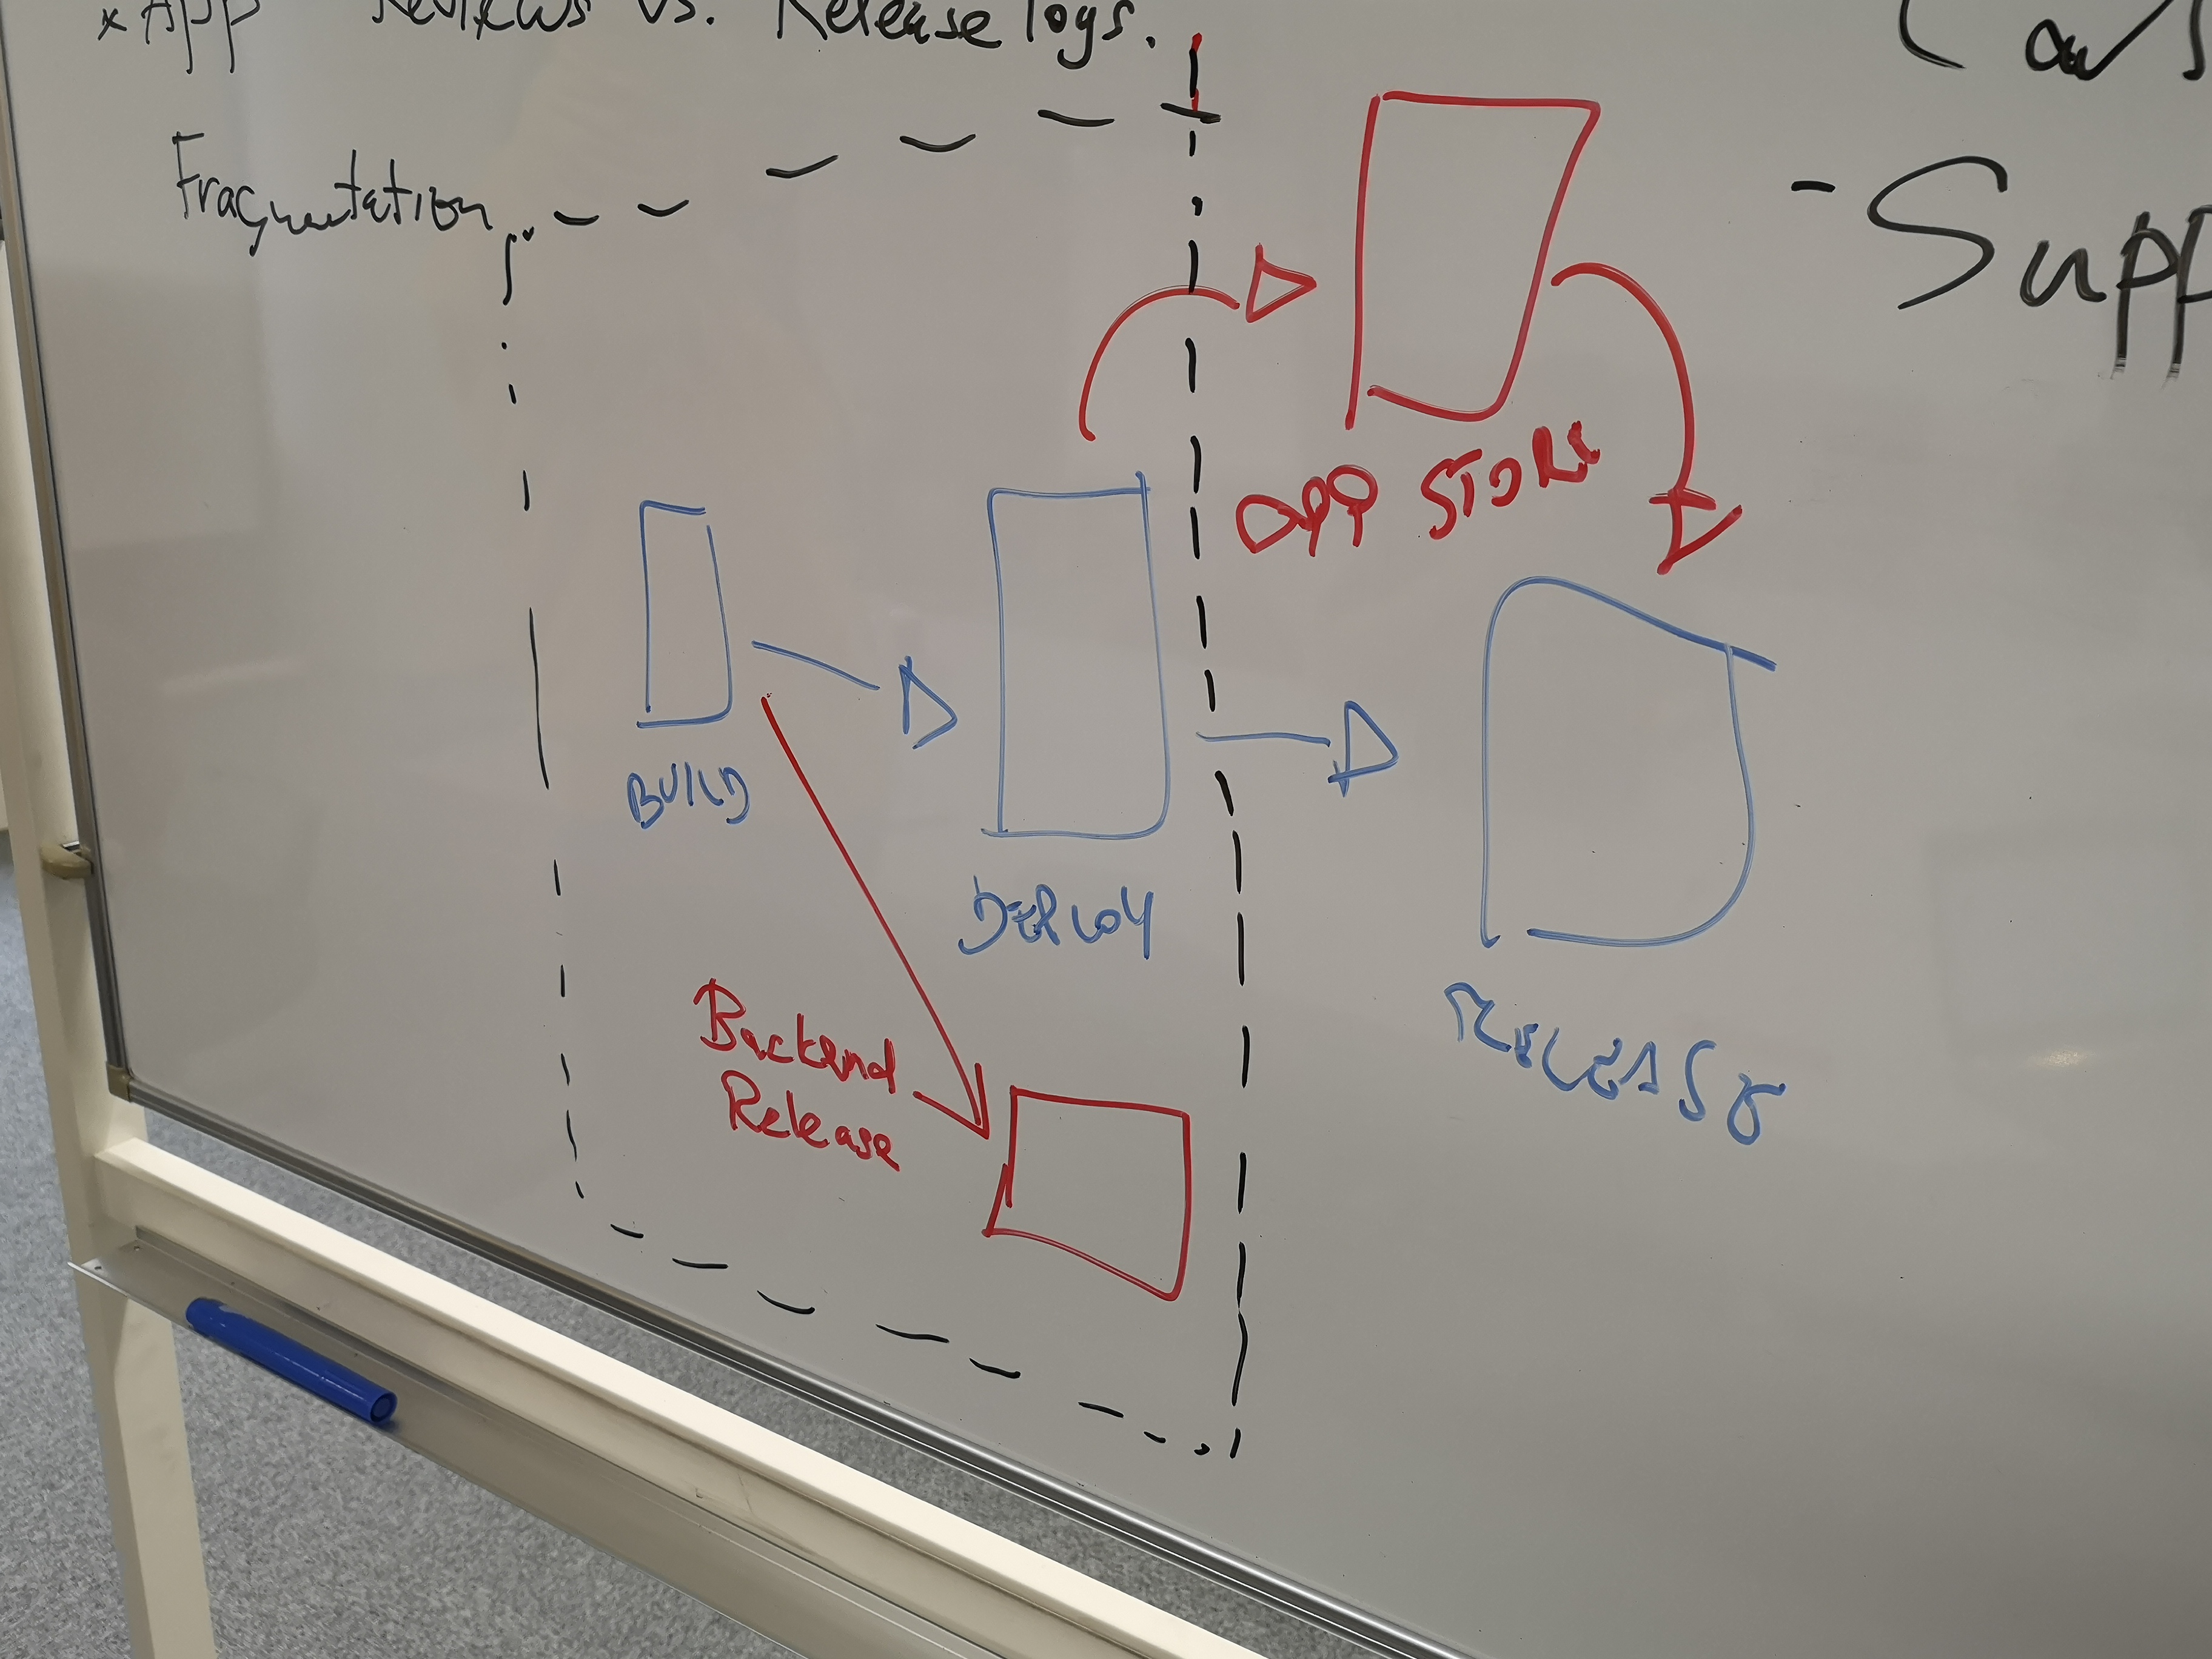 x App Reviews vs. Release logs.
Fragmentation
- Supp
APP STORE
BUILD
DEPLOY
RELEASE
Backend
Release